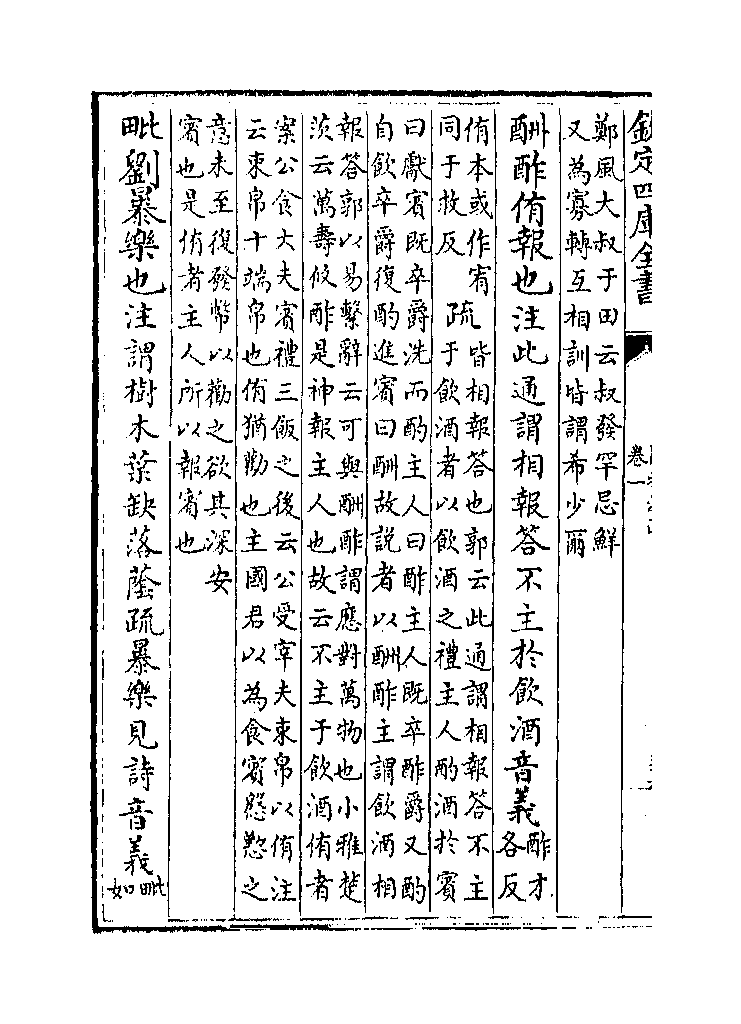 欽定四庫全書
卷一
鄭風大叔于田云叔發罕忌鮮
又為寡轉互相訓皆謂希少爾
酬酢侑報也注此通謂相報答不主於飲酒音義酢才
各反
侑本或作宥
同于救反
疏皆相報答也郭云此通謂相報答不主
于飲酒者以飲酒之禮主人酌酒於賓
曰獻賓既卒爵洗而酌主人曰酢主人既卒酢爵又酌
自飲卒爵復酌進賓曰酬故説者以酬酢主謂飲酒相
報答郭以易繫辭云可與酬酢謂應對萬物也小雅楚
茨云萬壽攸酢是神報主人也故云不主于飲酒侑者
案公食大夫賓禮三飯之後云公受宰夫束帛以侑注
云束帛十端帛也侑猶勸也主國君以為食賓慇懃之
意未至復發幣以勸之欲其深安
賓也是侑者主人所以報賓也
毗劉暴樂也注謂樹木葉缺落蔭疏暴樂見詩音義毗
如